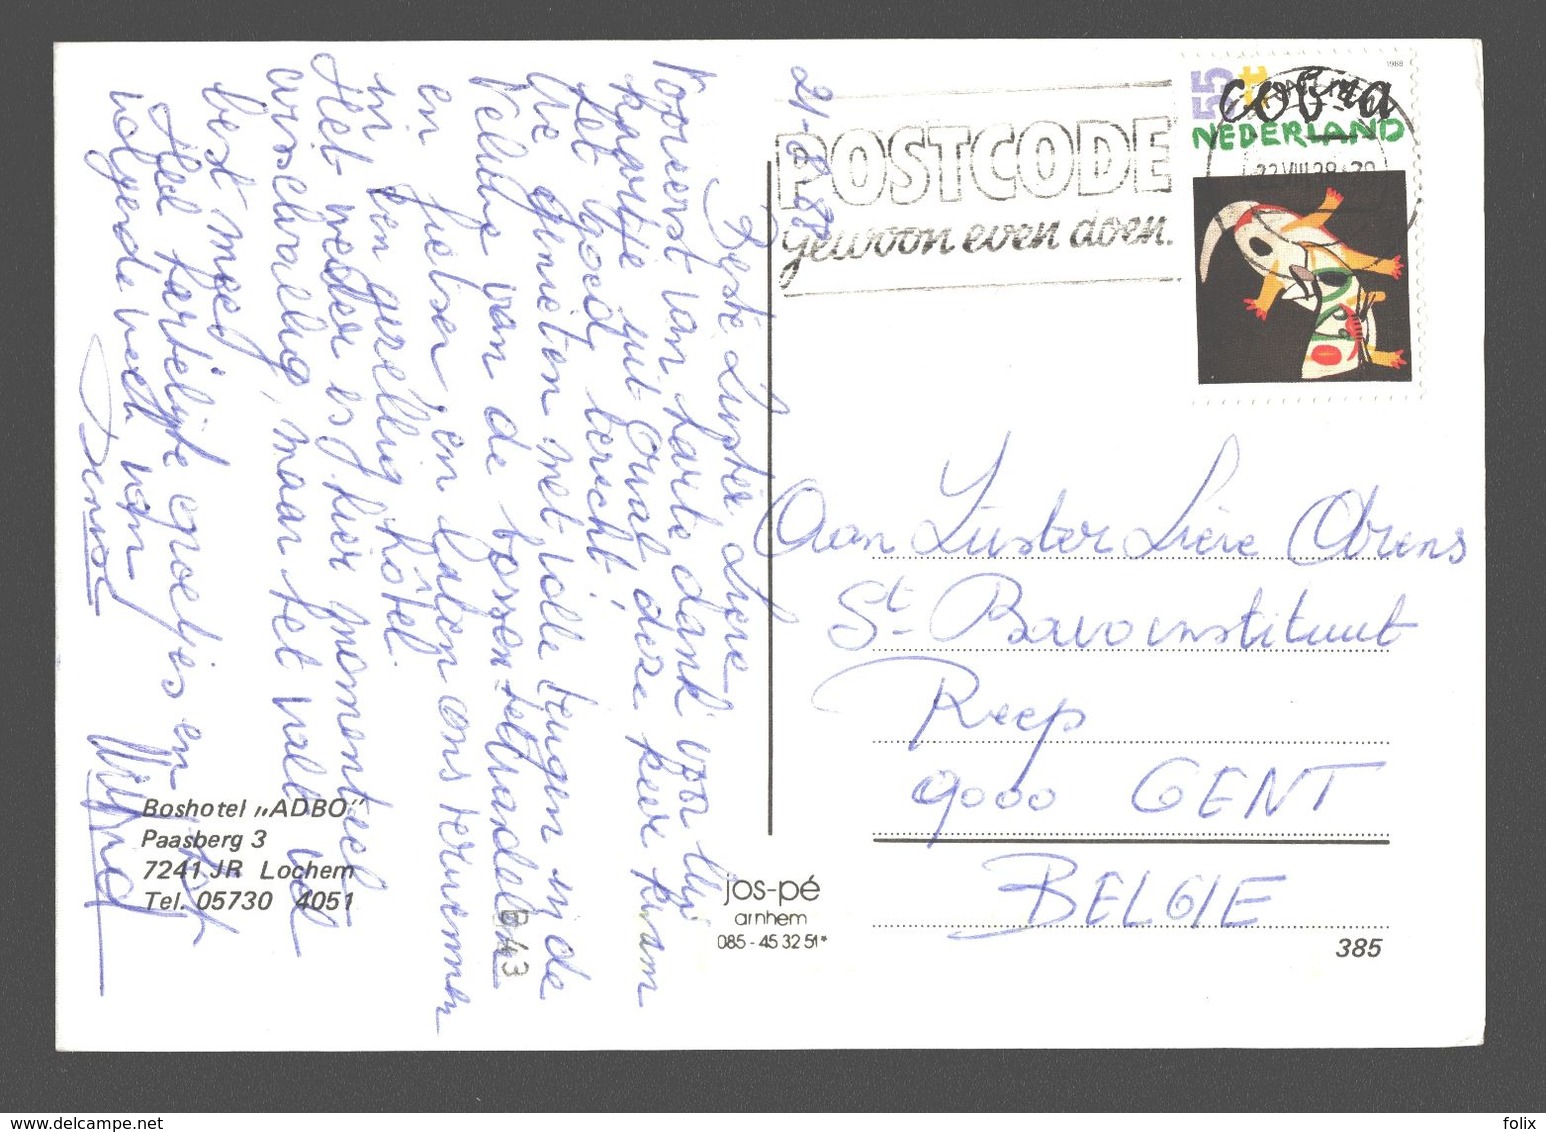 21-8-88
Beste Zuster Liere
Vooreerst van harte dank voor Uw
kaartje uit Orval deze keer kwam
het goed terecht!
We genieten met volle teugen in de
Veluwe van de bossen- het wandelen
en fietsen, en laten ons verwennen
in een gezellig hôtel.
Het weder is hier momenteel
wisselvallig, maar het valt wel
best mee
Heel hartelijke groetjes en tot
volgende week van
Boshotel „ADBO”
Paasberg 3
7241 JR Lochem
Tel. 05730 4051
B 43
jos-pé
arnhem
085 - 45 32 51*
POSTCODE
gewoon even doen.
55 ct
1988
cobra
NEDERLAND
Aan Züster Liere
St Bavoinstituut
Reep
9000 GENT
BELGIE
385
folix
delcampe.net